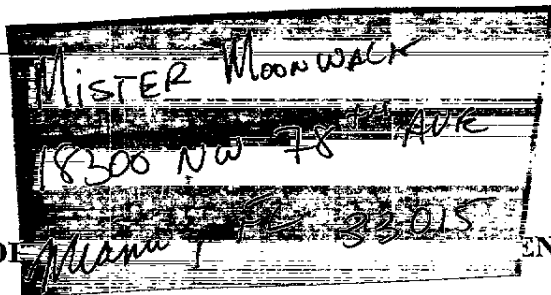 MISTER MOONWALK
18300 NW 78TH AVE
Miami FL 33015